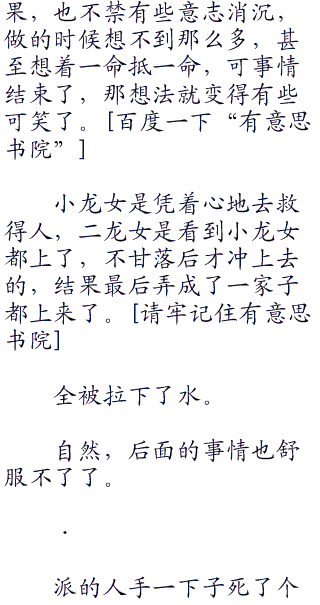 果，也不禁有些意志消沉，
做的时候想不到那么多，甚
至想着一命抵一命，可事情
结束了，那想法就变得有些
可笑了。[百度一下“有意思
书院”]
小龙女是凭着心地去救
得人，二龙女是看到小龙女
都上了，不甘落后才冲上去
的，结果最后弄成了一家子
都上来了。[请牢记住有意思
书院]
全被拉下了水。
自然，后面的事情也舒
服不了了。
．
派的人手一下子死了个